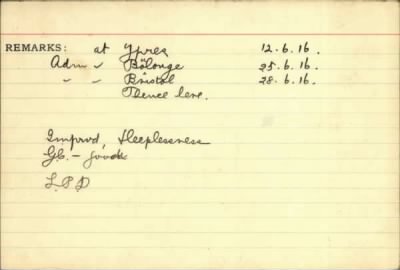 REMARKS: at Ypres 12.6.16.
Adm " Bolonge 25.6.16.
" " Bristol 28.6.16.
Thence here.
Improvd, Sleeplessness
G.C. - good
L.P.D